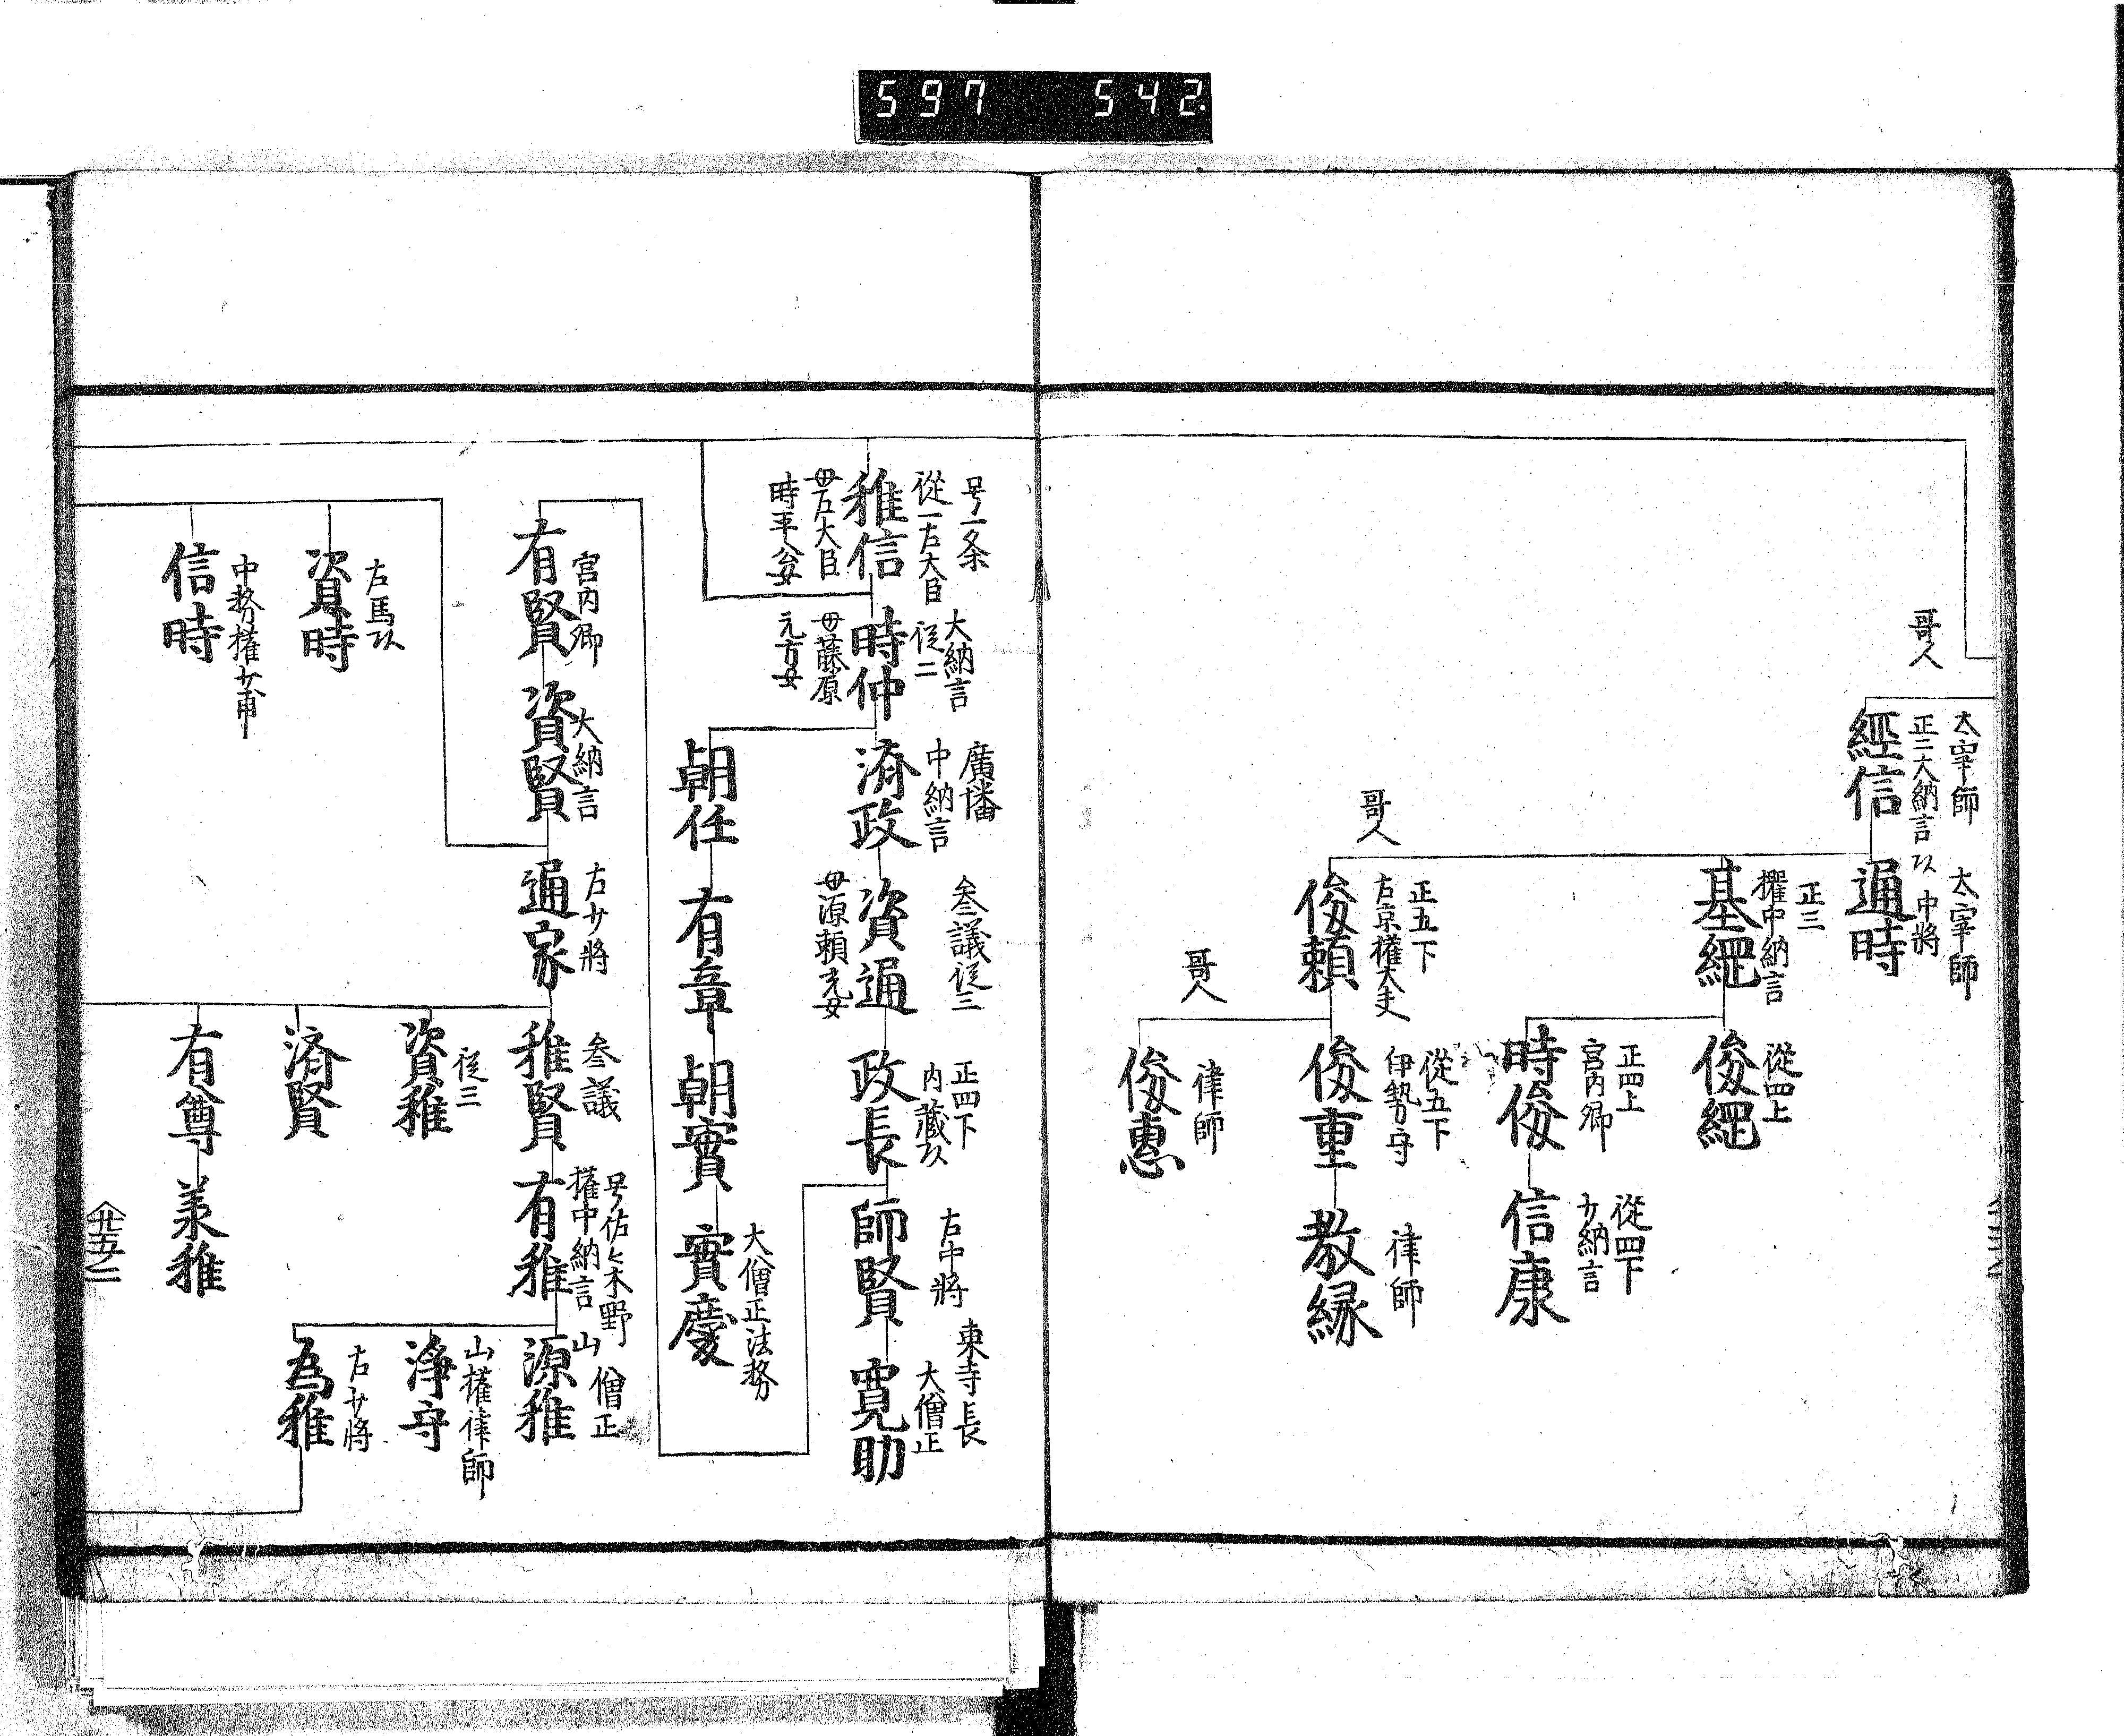 597 542
哥人
太宰師
正二大納言
經信
太宰師
中將
通時
正三
擢中納言
基綱
從四上
俊綱
正四上
宮内卿
時俊
從四下
少納言
信康
哥人
正五下
右京權大夫
俊頼
從五下
伊勢守
俊重
律師
教縁
哥人
律師
俊惠
号一条
從一右大臣
雅信
母左大臣
時平公女
大納言
從二
時仲
母藤原
元方女
廣幡
中納言
済政
参議從三
資通
母源頼光女
正四下
内藏
政長
右中將
師賢
東寺長
大僧正
寛助
朝任
有章
朝實
大僧正法務
實慶
宮内卿
有賢
大納言
資賢
右少將
通家
参議
雅賢
号佐々木野
権中納言
有雅
山僧正
源雅
山権律師
浄守
右少將
為雅
從三
資雅
済賢
有尊
兼雅
右馬
資時
中務權少甫
信時
廿五ノ二